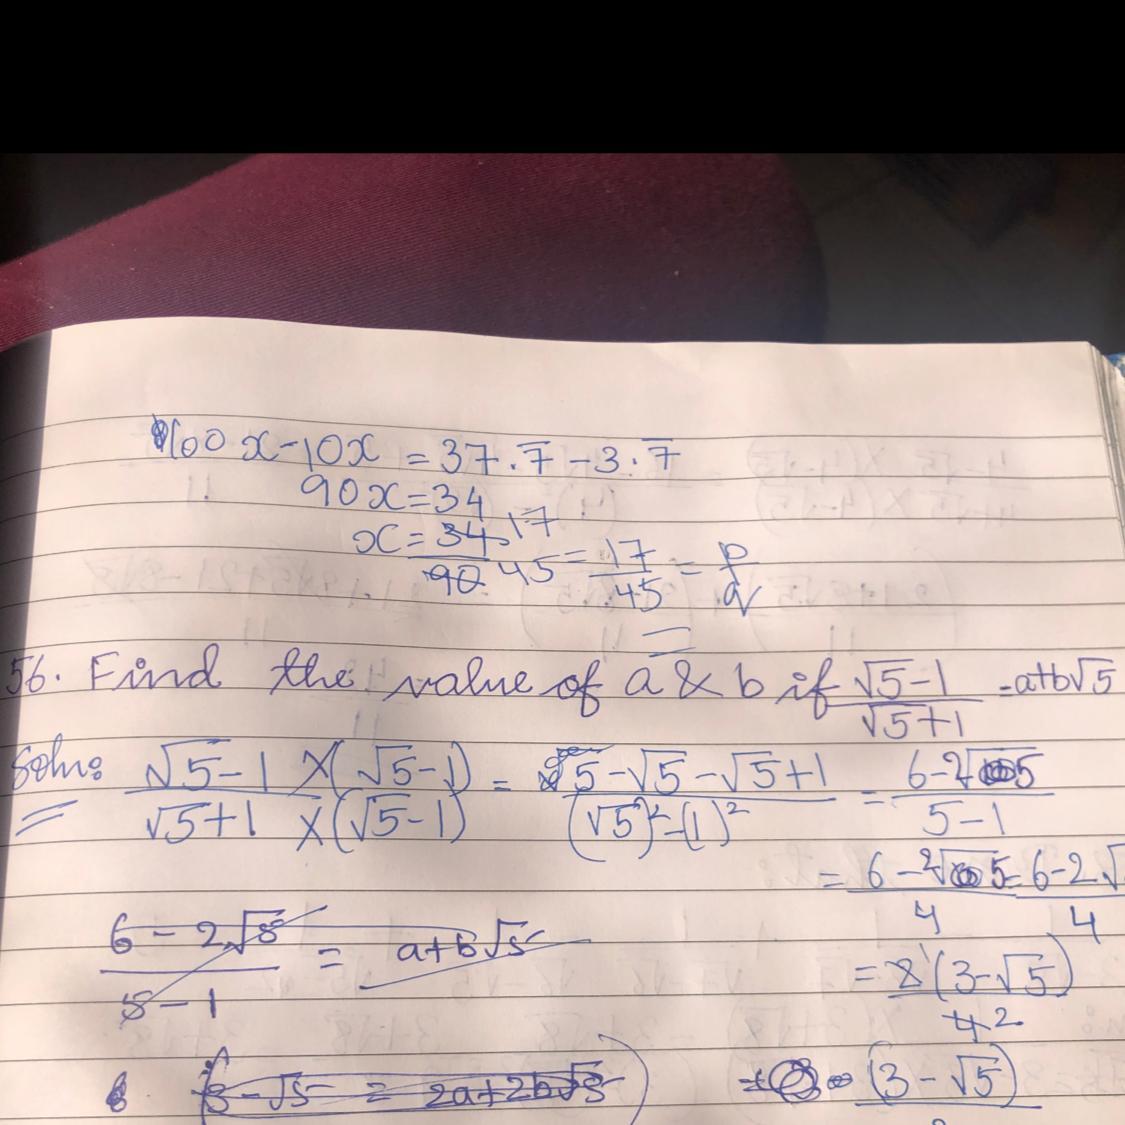 100x-10x = 37.7̅ - 3.7̅
90x = 34
x = 34/90 17/45 = 17/45 = p/q
56. Find the value of a & b if (√5-1)/(√5+1) = a+b√5
Soln: (√5-1)/(√5+1) × (√5-1)/(√5-1) = (5-√5-√5+1)/((√5)²-(1)²) = (6-2√5)/(5-1)
= (6-2√5)/4 = (6-2√)/4
(6-2√5)/(5-1) = a+b√5
= 2(3-√5)/4 2
3-√5 = 2a+2b√5
= (3-√5)